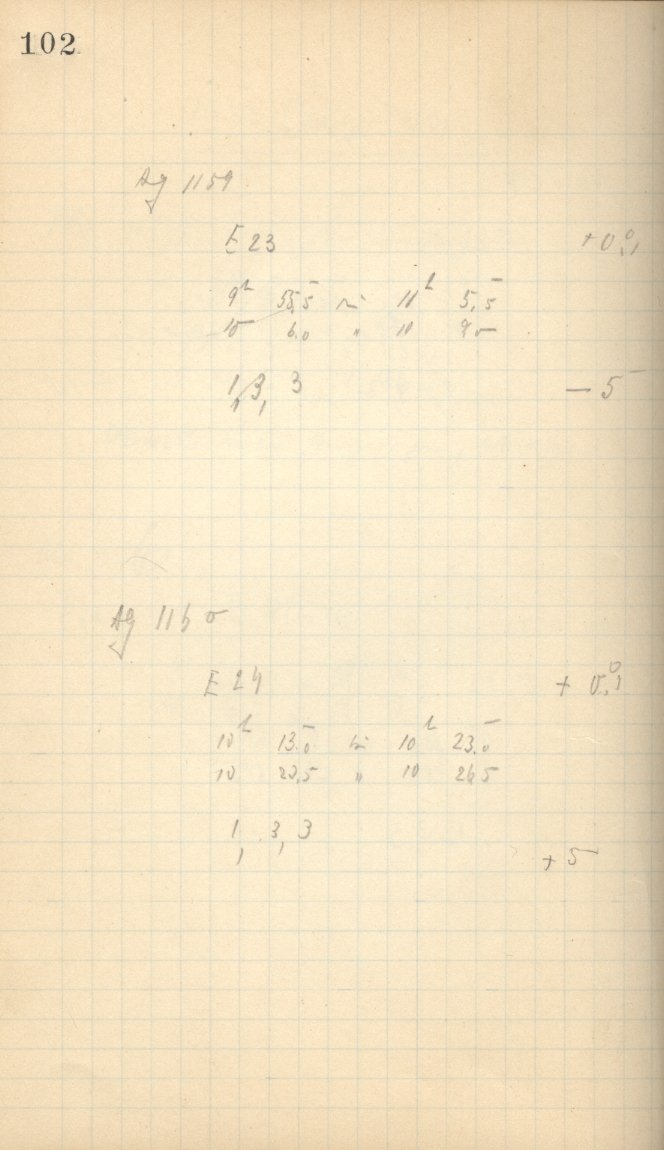 102
Ag 1159
E 23 +0°,1
9h 55,5 bis 11h 5,5
10 6,0 " 10 9
1, 3, 3 — 5
Ag 1160
E 24 + 0°,1
10h 13,0 bis 10h 23,0
10 20,5 " 10 26,5
1, 3, 3
+ 5